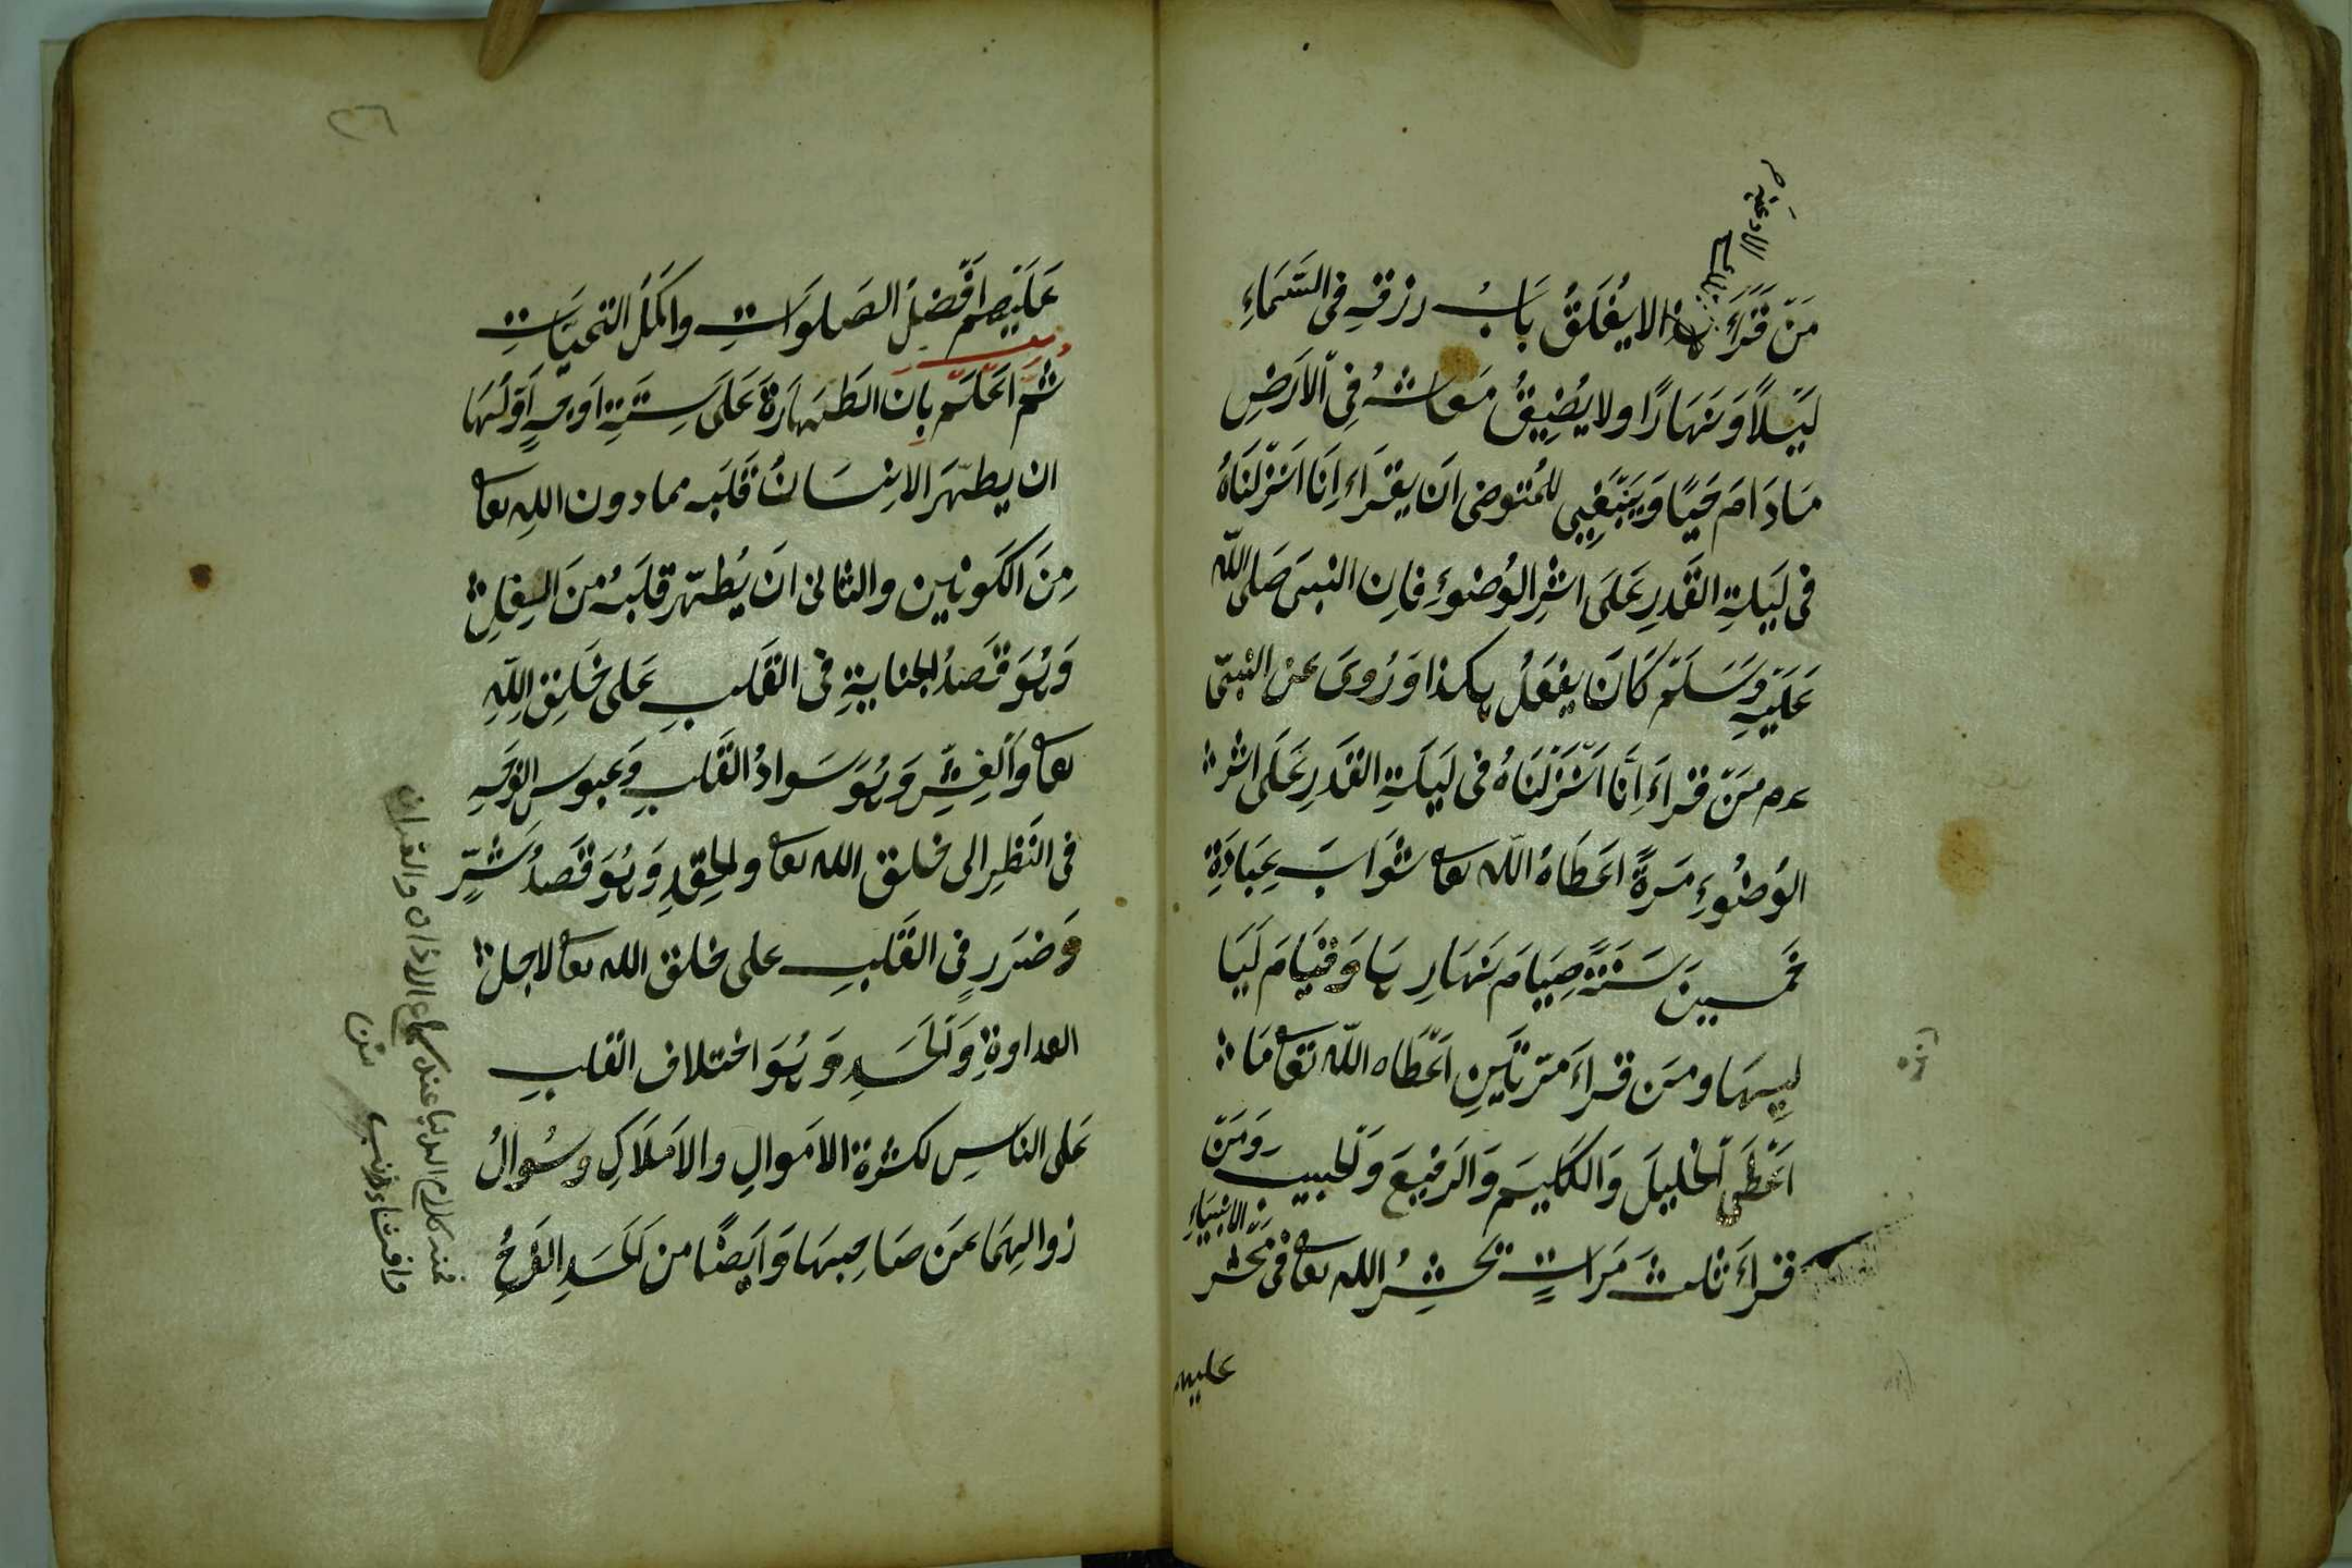 مَنْ قَرَاءَ هذا لايُغْلَقُ بَابُ رزقهِ فى السَّمَاءِ
لَيْلاً وَنَهَارًا ولا يُضِيقُ مَعاشهُ فِى الاَرْضِ
مَادَامَ حَيًا وَيَنْبَغِى للمُتوضى اَنْ يقْرَاءَ اِنَا اَنْزَلْنَاهُ
فى لَيْلةِ القَدرِ عَلَى اثرِ الوُضوءِ فاِن النبىَ صَلى اللّه
عَلَيْهِ وَسَلَمْ كَانَ يفْعَلُ هكذا وَرُوىَ عن النبىّ
عم مَنْ قراءَ اِنَّا اَنْزَلْنَاهُ فى لَيْلَةِ القَدرِ عَلَى اثر
الوُضُوءِ مَرةً اعَطَاهُ اللّه تعا ثوَابَ عِبَادَةِ
خَمسينَ سَنَةً صِيَامَ نَهارِها وَقيَامَ لَيَا
لِيهَا ومَن قراءَ مَرّتَيْنِ اَعْطَاه اللّه تعا مَا
اَعْطَى الْخليلَ وَالكَلِيمَ وَالرَفيعَ وَلْحَبيبَ وَمَنْ
قراءَ ثلثَ مَرَاتٍ يَحْشِرُ الله تعا فى مَحْشر الانبيَاءِ
عليهم
٢٦
عَلَيْهِم اَفْضلُ الصَلوَاتِ واكْمَلُ التحيَّاتِ
ثُمَ اعْلَمْ بِاَن الطَهَارَةَ عَلَى سِتَةِ اَوجهٍ اَوَلُهَا
ان يطهّرَ الاِنسَانُ قَلْبَه مما دون اللهِ تعا
مِنَ الكَونين والثانى اَنْ يُطهّر قلبَهُ مِنَ الغِلِ
وَهُوَ قَصدُ الجنايةِ فى القَلبِ عَلى خَلِق اللّهِ
تعا وَالْغِشِّ وَهُوَ سَوادُ القَلبِ وَعبوس الوَجهِ
فى النَظْرِ الى خلق الله تعا ولحِقدِ وَهُوَ قَصدُ شَرٍّ
وَضرَرٍ فى القَلبِ على خلق الله تعا لاجل
العداوةِ وَلْحَسَدِ وَهُوَ اختلاف القلبِ
عَلى الناسِ لكثرة الاَموالِ والاَملاَكِ وسُوالُ
زوالهِمَا عَن صَاحِبِهَا وَاَيضًا من لْحَسَدِ الفَرَحُ
عند كلام الدنيا عند سماع الاذان والقران